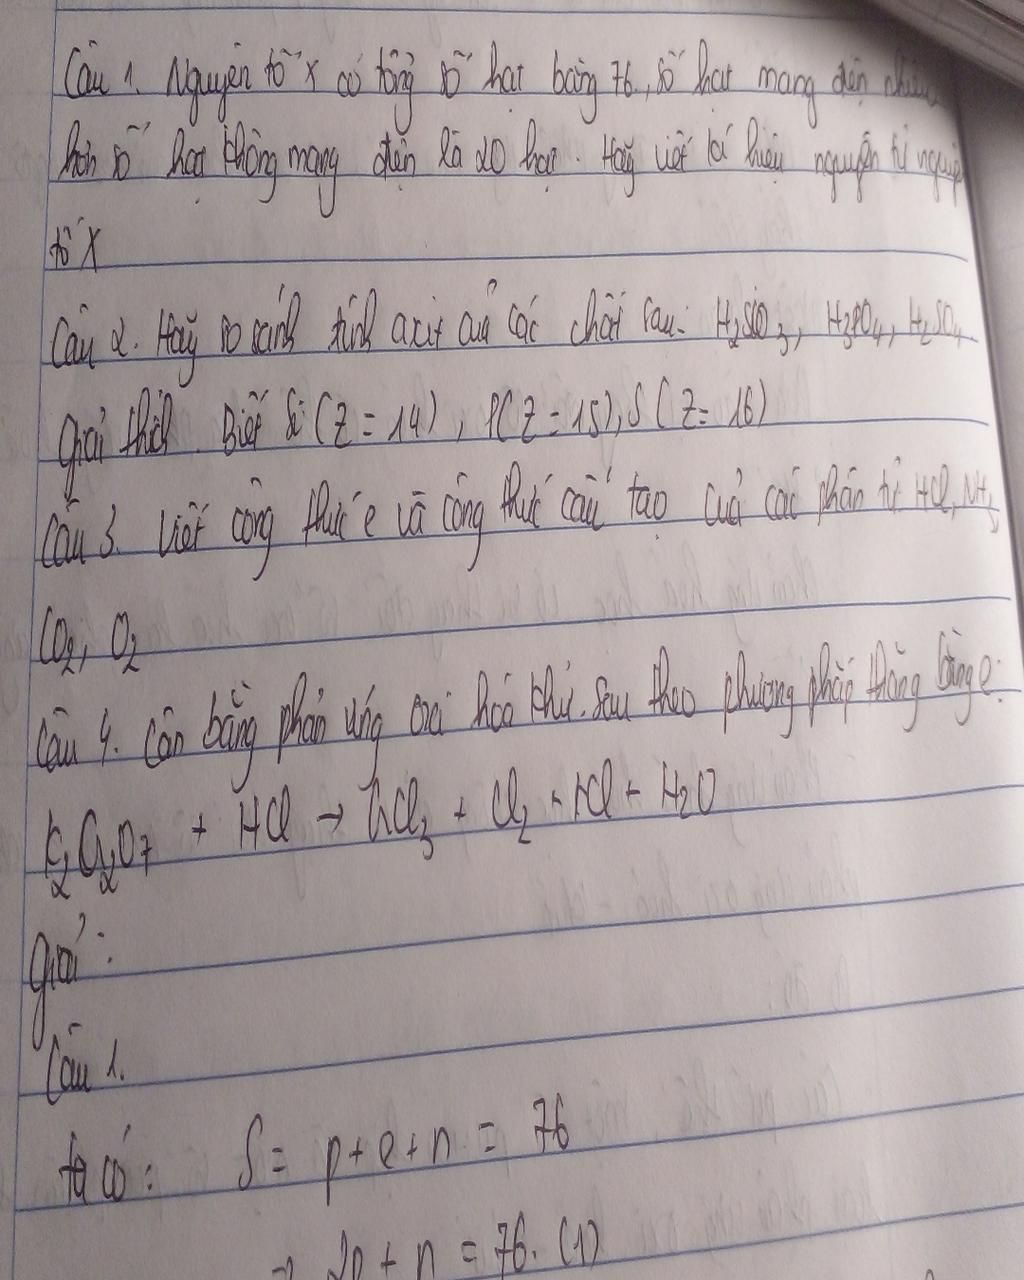 Câu 1. Nguyên tố X có tổng số hạt bằng 76, số hạt mang điện nhiều
hơn số hạt không mang điện là 20 hạt. Hãy viết kí hiệu nguyên tử nguyên
tố X
Câu 2. Hãy so sánh tính axit của các chất sau: H₂SiO₃, H₃PO₄, H₂SO₄
Giải thích. Biết Si (Z = 14), P(Z = 15), S (Z = 16)
Câu 3. Viết công thức e và công thức cấu tạo của các phân tử HCl, NH₃
CO₂, O₂
Câu 4. Cân bằng phản ứng oxi hoá khử sau theo phương pháp thăng bằng e:
K₂Cr₂O₇ + HCl → CrCl₃ + Cl₂ + KCl + H₂O
Giải:
Câu 1.
Ta có: S = p + e + n = 76
→ 2p + n = 76. (1)